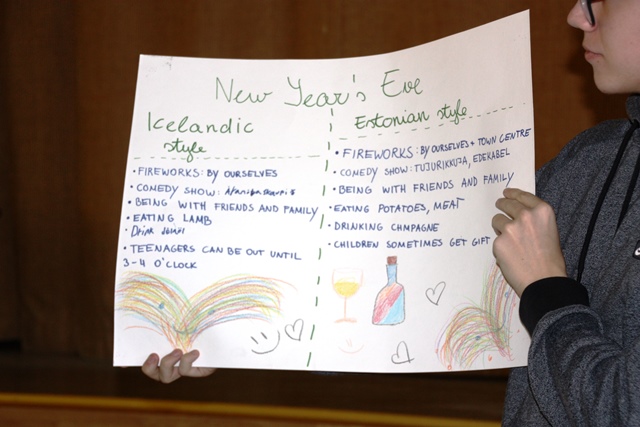 New Year's Eve
Icelandic
style
• FIREWORKS: BY OURSELVES
• COMEDY SHOW:
• BEING WITH FRIENDS AND FAMILY
• EATING LAMB
• Drink
• TEENAGERS CAN BE OUT UNTIL
3-4 O'CLOCK
Estonian style
• FIREWORKS: BY OURSELVES + TOWN CENTRE
COMEDY SHOW: TUJURIKKUJA, EDEKABEL
• BEING WITH FRIENDS AND FAMILY
• EATING POTATOES, MEAT
• DRINKING CHMPAGNE
• CHILDREN SOMETIMES GET GIFT